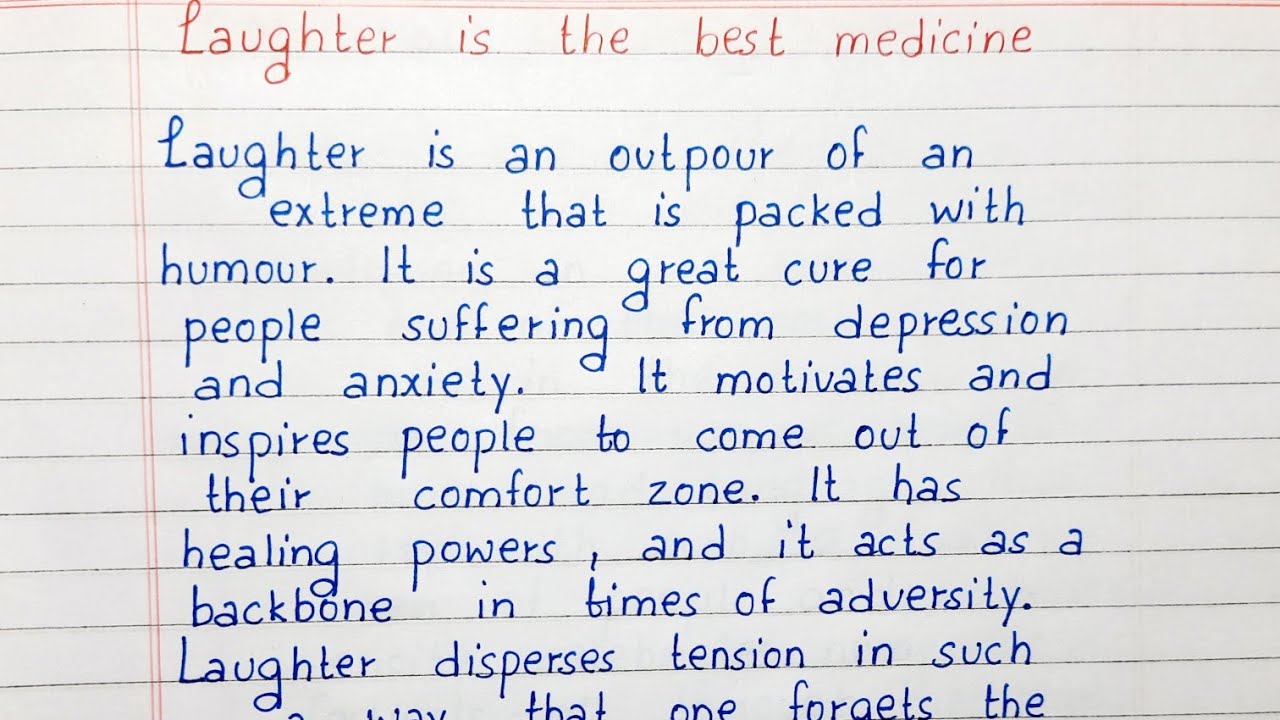 Laughter is the best medicine
Laughter is an outpour of an
extreme that is packed with
humour. It is a great cure for
people suffering from depression
and anxiety. It motivates and
inspires people to come out of
their comfort zone. It has
healing powers, and it acts as a
backbone in times of adversity.
Laughter disperses tension in such
a way that one forgets the